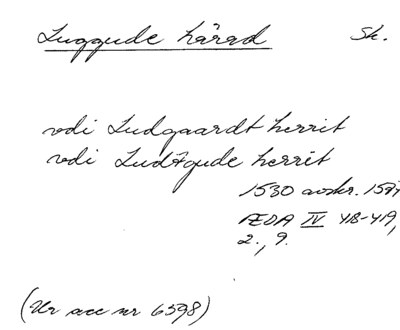 Luggude härad Sk.
vdi Ludgaardt herrit
vdi Ludtgude herrit
1530 avskr. 1577
ÆDA IV 418-419,
2., 9.
(Ur acc nr 6598)